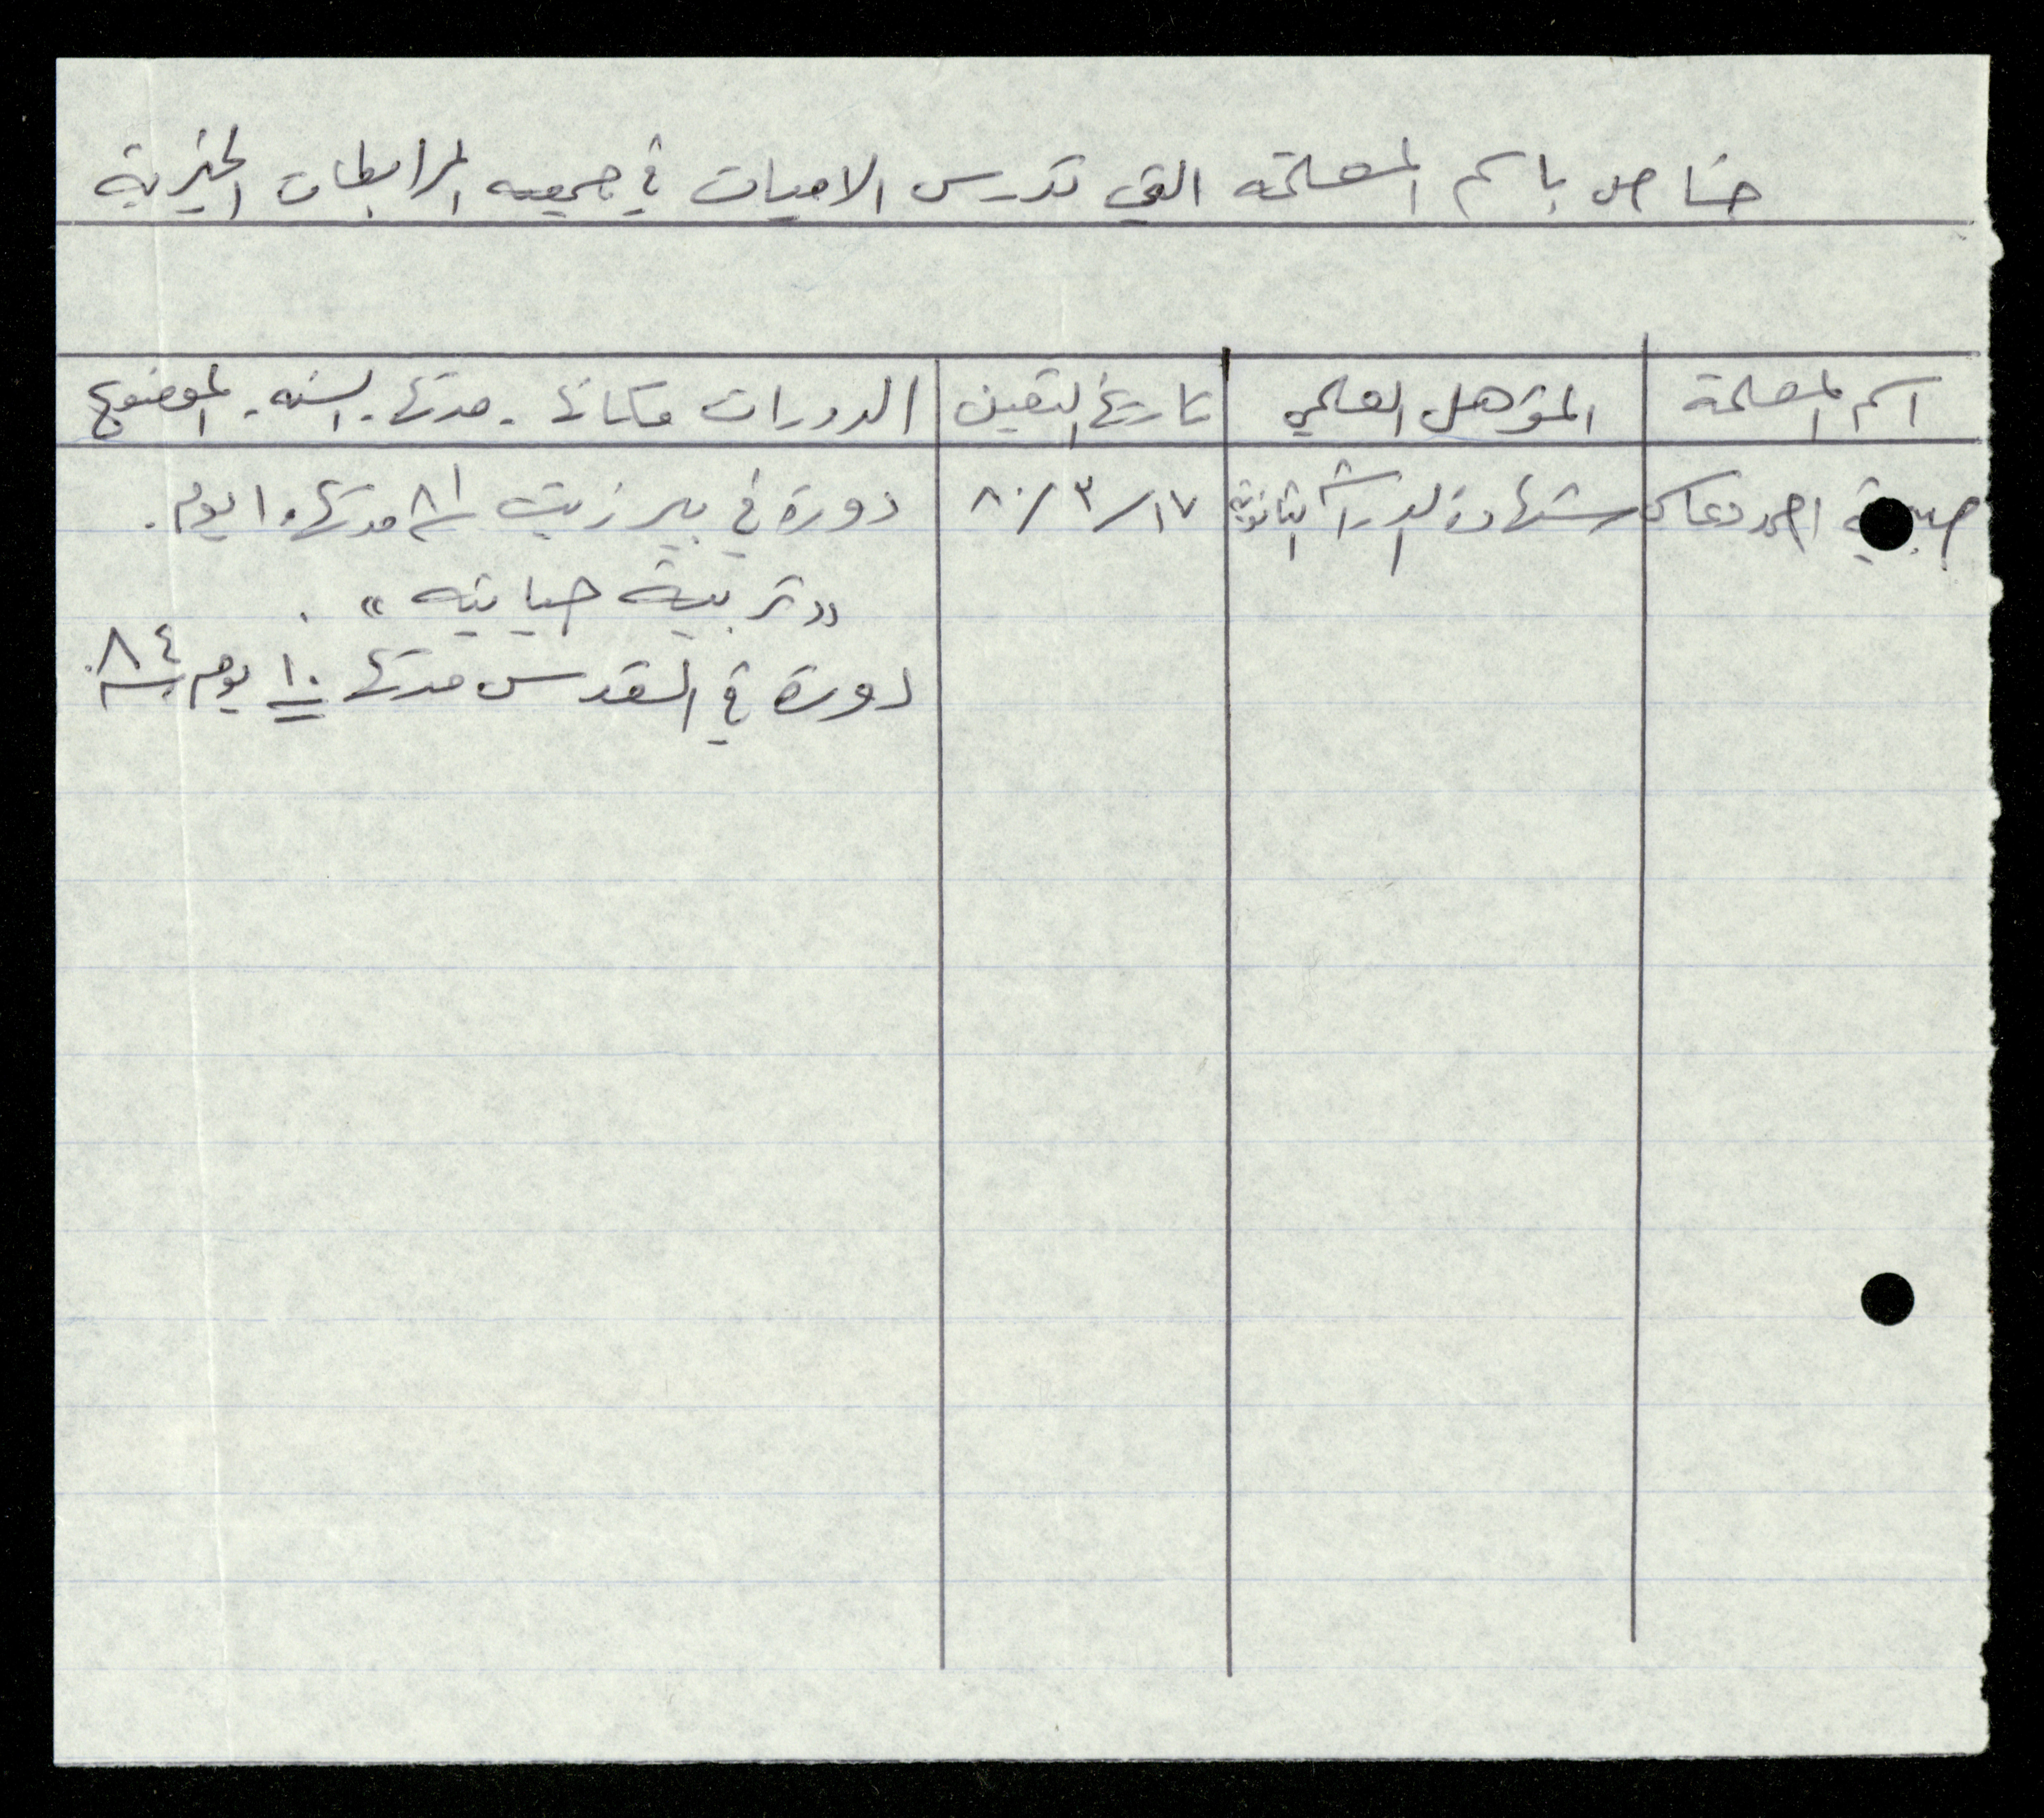 خاص باسم المعلمة التي تدرس الاميات في جمعيه المرابطات الخيرية
اسم المعلمة المؤهل العلمي تاريخ التعين الدورات مكانها - مدتها - السنه - الموضوع
احمد شهادة الدراسة الثانوية ١٧/٣/٨٠ دورة في بير زيت ٨١ مدتها ١٠ يوم.
"تربية حياتيه".
دورة في القدس مدتها ١٠ يوم ٨٤